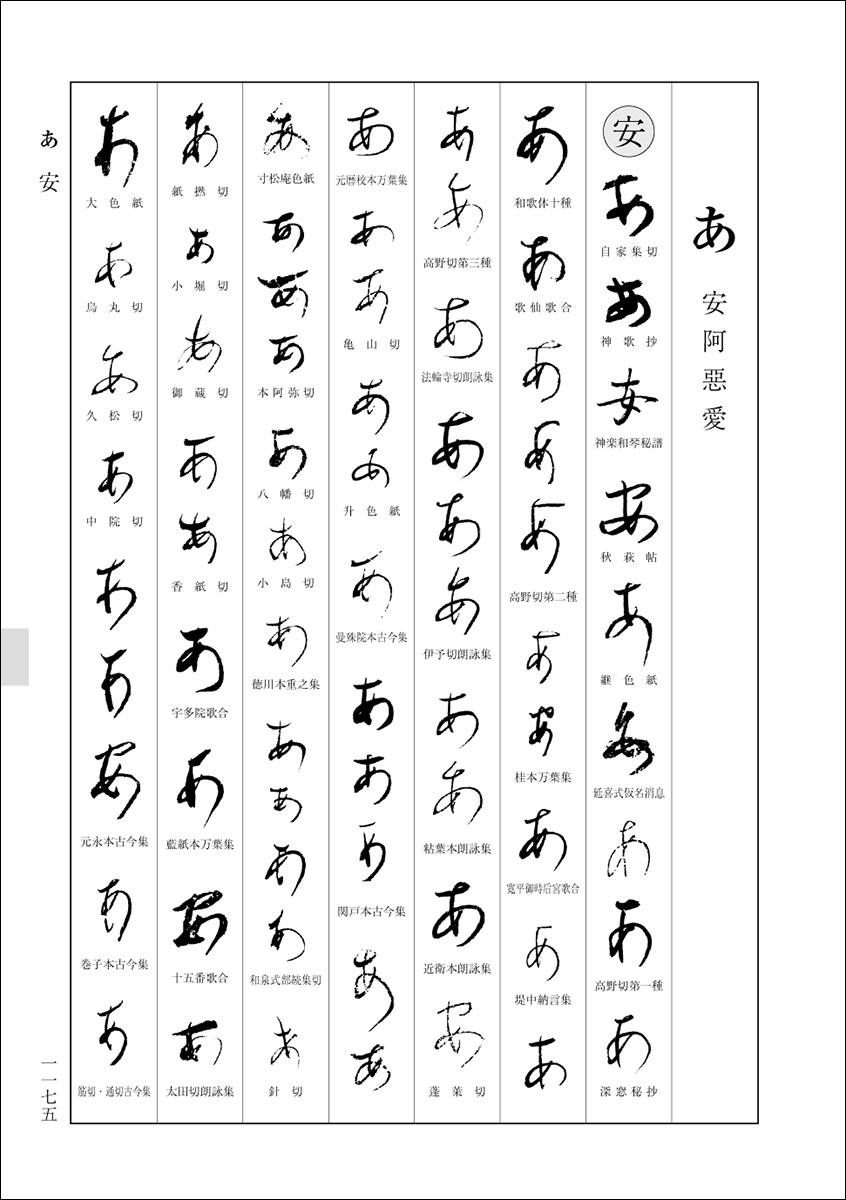 あ　安阿惡愛
安
自家集切
神歌抄
神楽和琴秘譜
秋萩帖
継色紙
延喜式仮名消息
高野切第一種
深窓秘抄
和歌体十種
歌仙歌合
高野切第二種
桂本万葉集
寛平御時后宮歌合
堤中納言集
高野切第三種
法輪寺切朗詠集
伊予切朗詠集
粘葉本朗詠集
近衛本朗詠集
蓬萊切
元暦校本万葉集
亀山切
升色紙
曼殊院本古今集
関戸本古今集
寸松庵色紙
本阿弥切
八幡切
小島切
徳川本重之集
和泉式部続集切
針切
紙撚切
小堀切
御蔵切
香紙切
宇多院歌合
藍紙本万葉集
十五番歌合
太田切朗詠集
大色紙
烏丸切
久松切
中院切
元永本古今集
巻子本古今集
筋切・通切古今集
あ　安
一一七五